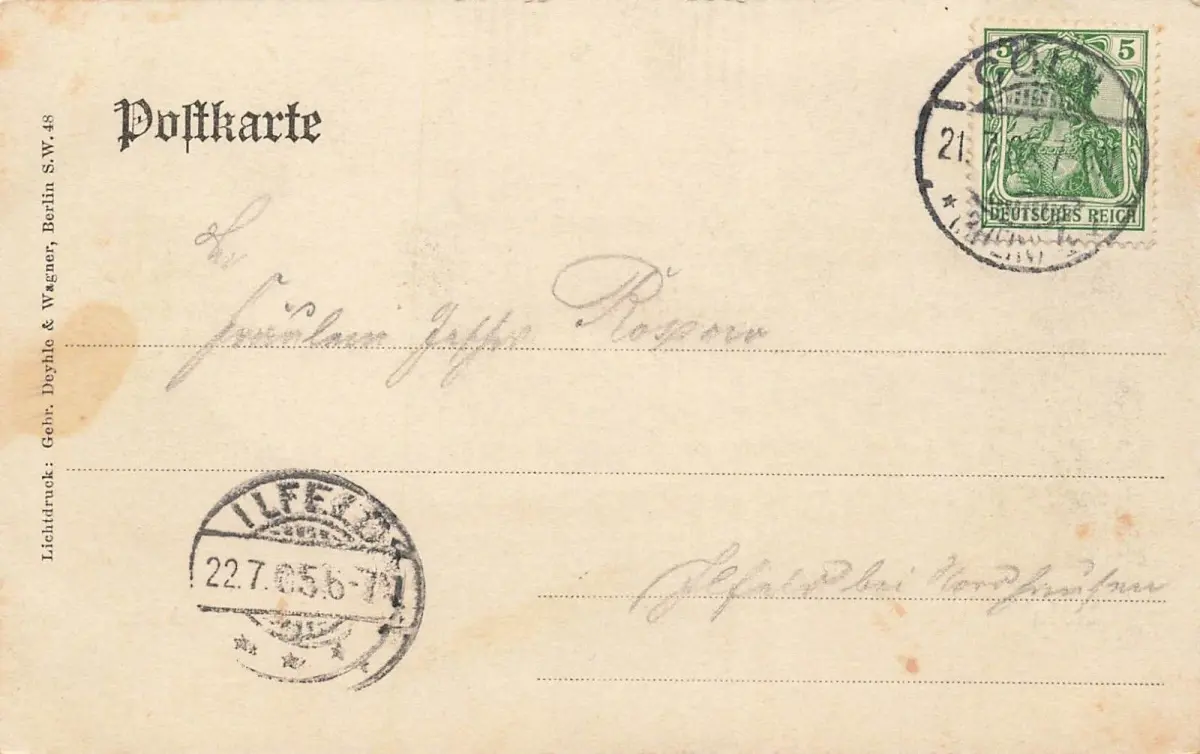 Postkarte
5 5
DEUTSCHES REICH
CÖLN
21.7.
Fräulein
ILFELD
22.7.05.6-7N
Ilfeld bei Nordhausen
Lichtdruck: Gebr. Deyhle & Wagner, Berlin S.W. 48